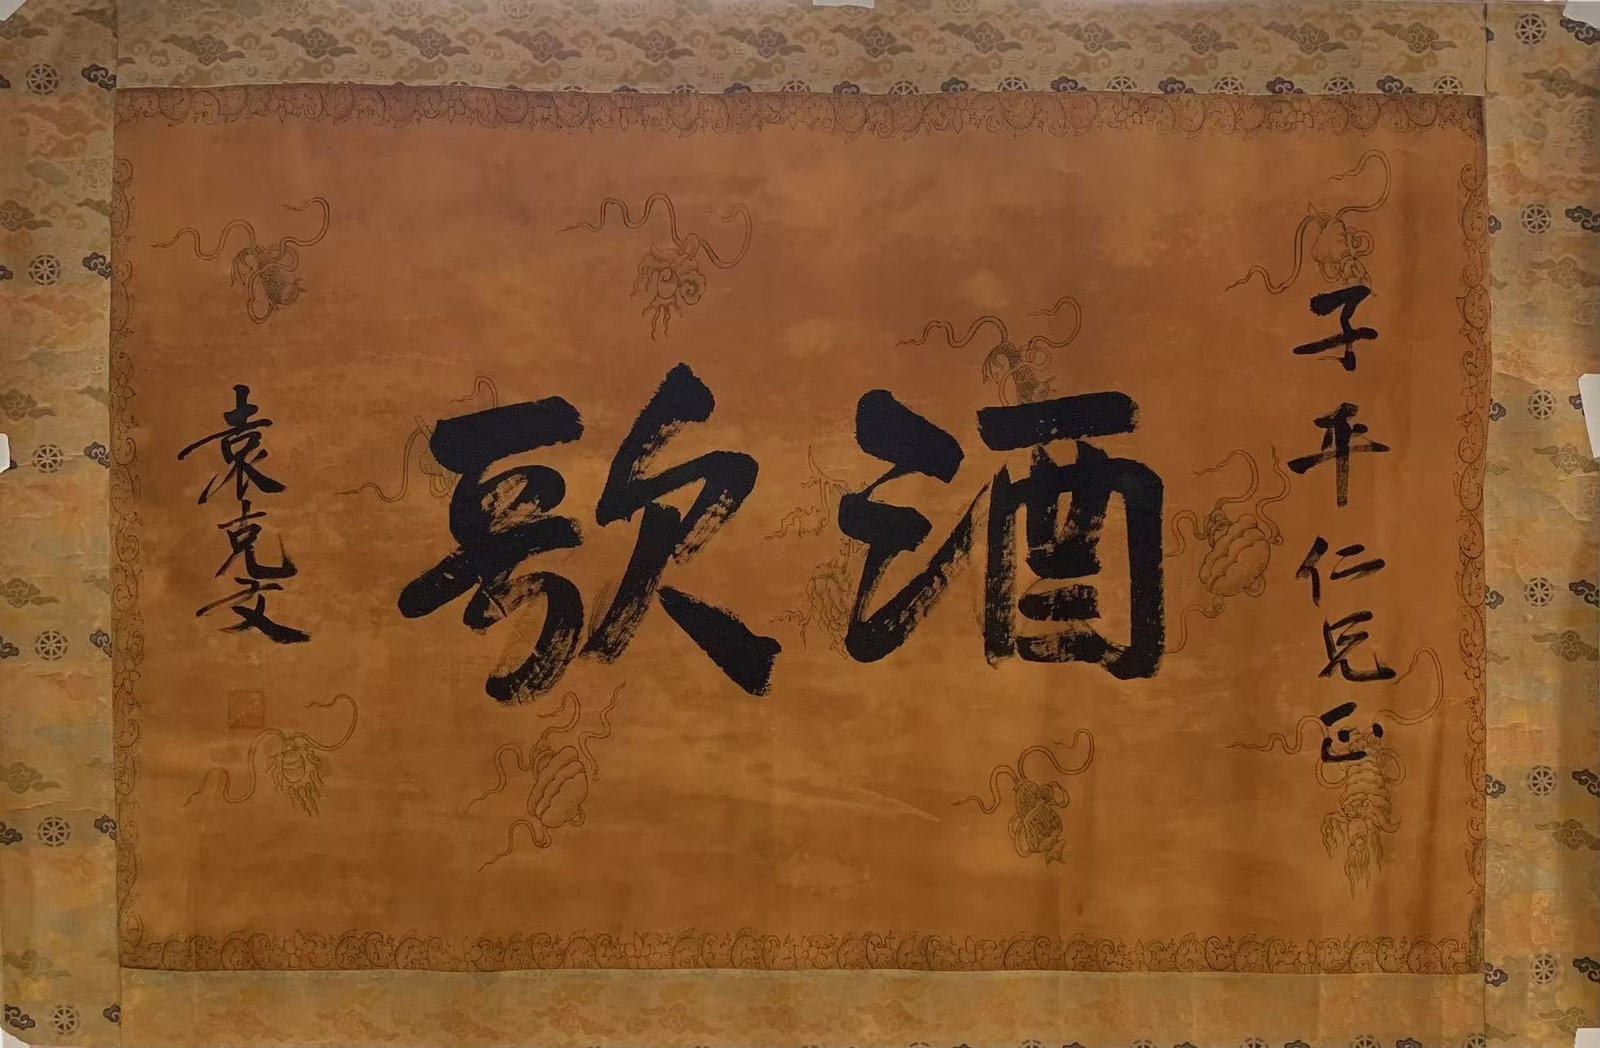 子平仁兄正
酒歌
袁克文